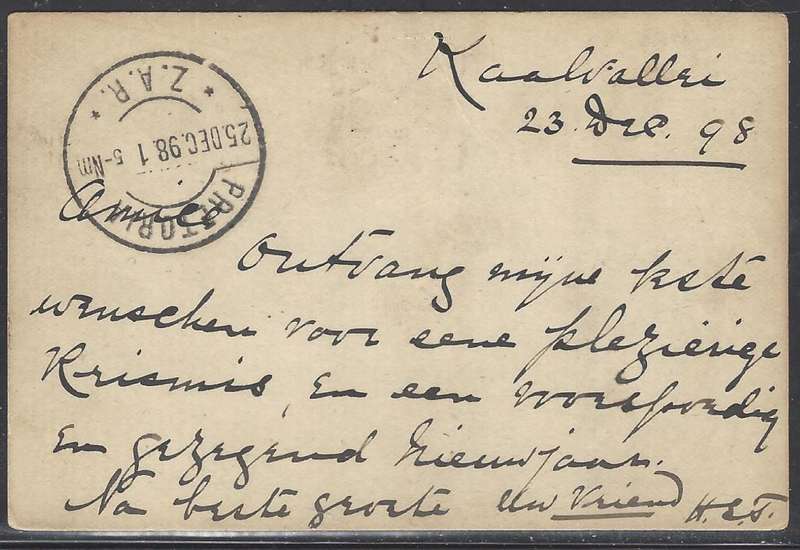 Kaalvallei
23. Dec. 98
PRETORIA
25.DEC.98.1 5-Nm
* Z.A.R. *
Amice
Ontvang mijne beste
wenschen voor eene plezierige
Krismis, en een voorspoedig
en gezegend Nieuwjaar.
Na beste groete Uw Vriend H.S.T.